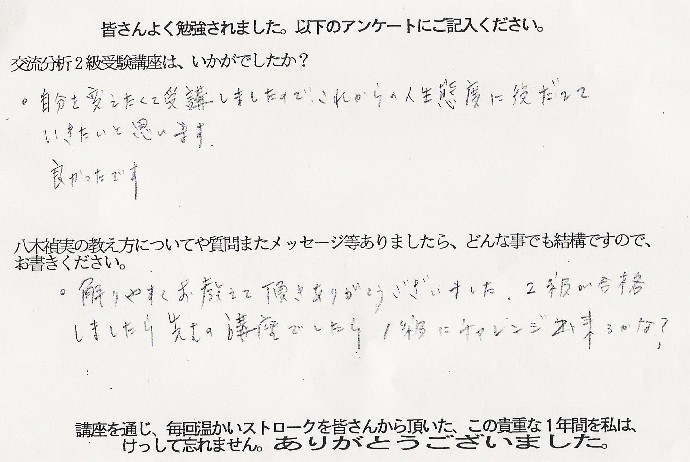 皆さんよく勉強されました。以下のアンケートにご記入ください。
交流分析２級受験講座は、いかがでしたか？
。自分を変えたくて受講しましたので、これからの人生態度に役だてて
いきたいと思います。
良かったです
八木禎実の教え方についてや質問またメッセージ等ありましたら、どんな事でも結構ですので、
お書きください。
。解りやすくお教えて頂きありがとうございました。２級が合格
しましたら先生の講座でしたら１級にチャレンジ出来るかな？
講座を通じ、毎回温かいストロークを皆さんから頂いた、この貴重な１年間を私は、
けっして忘れません。ありがとうございました。